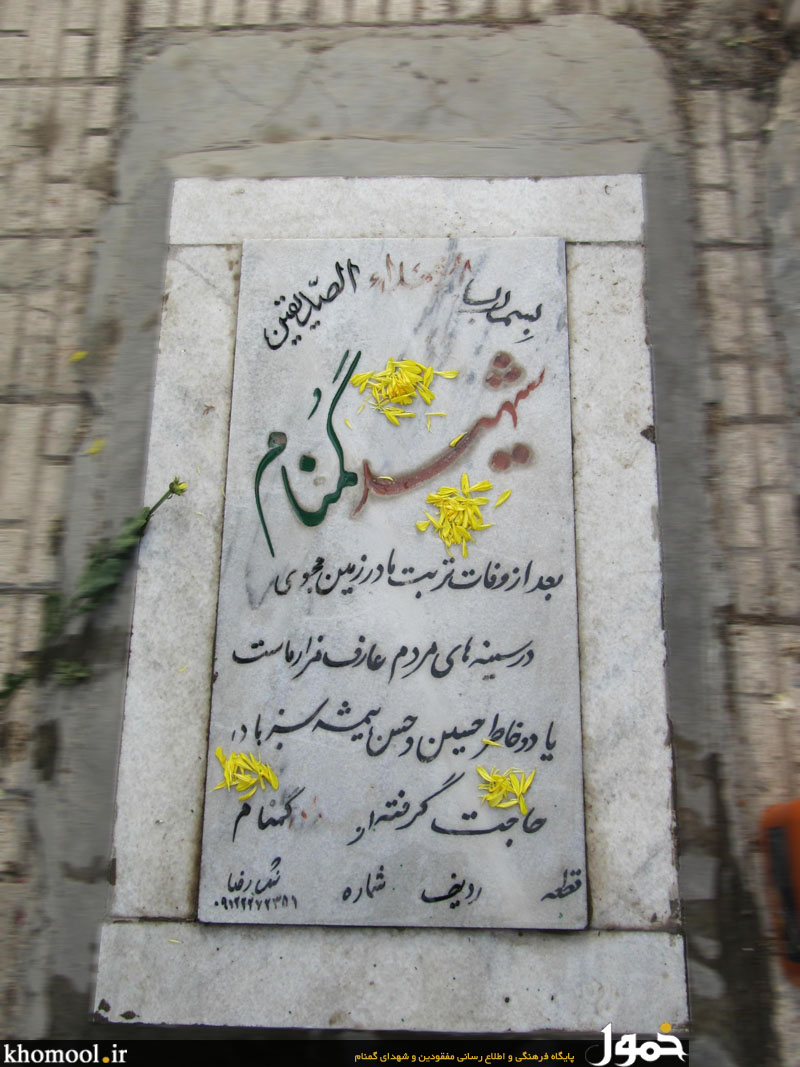 بسم رب الشهداء
الصدیقین
شهید گمنام
بعد از وفات تربت ما در زمین مجوی
در سینه های مردم عارف مزار ماست
یاد و خاطر حسین و حسن همیشه سبز باد
حاجت گرفته از گمنام
قطعه ردیف شماره سنگ رضا
۰۹۱۲۲۲۷۲۳۸۱
khomool.ir
پایگاه فرهنگی و اطلاع رسانی مفقودین و شهدای گمنام
خمول